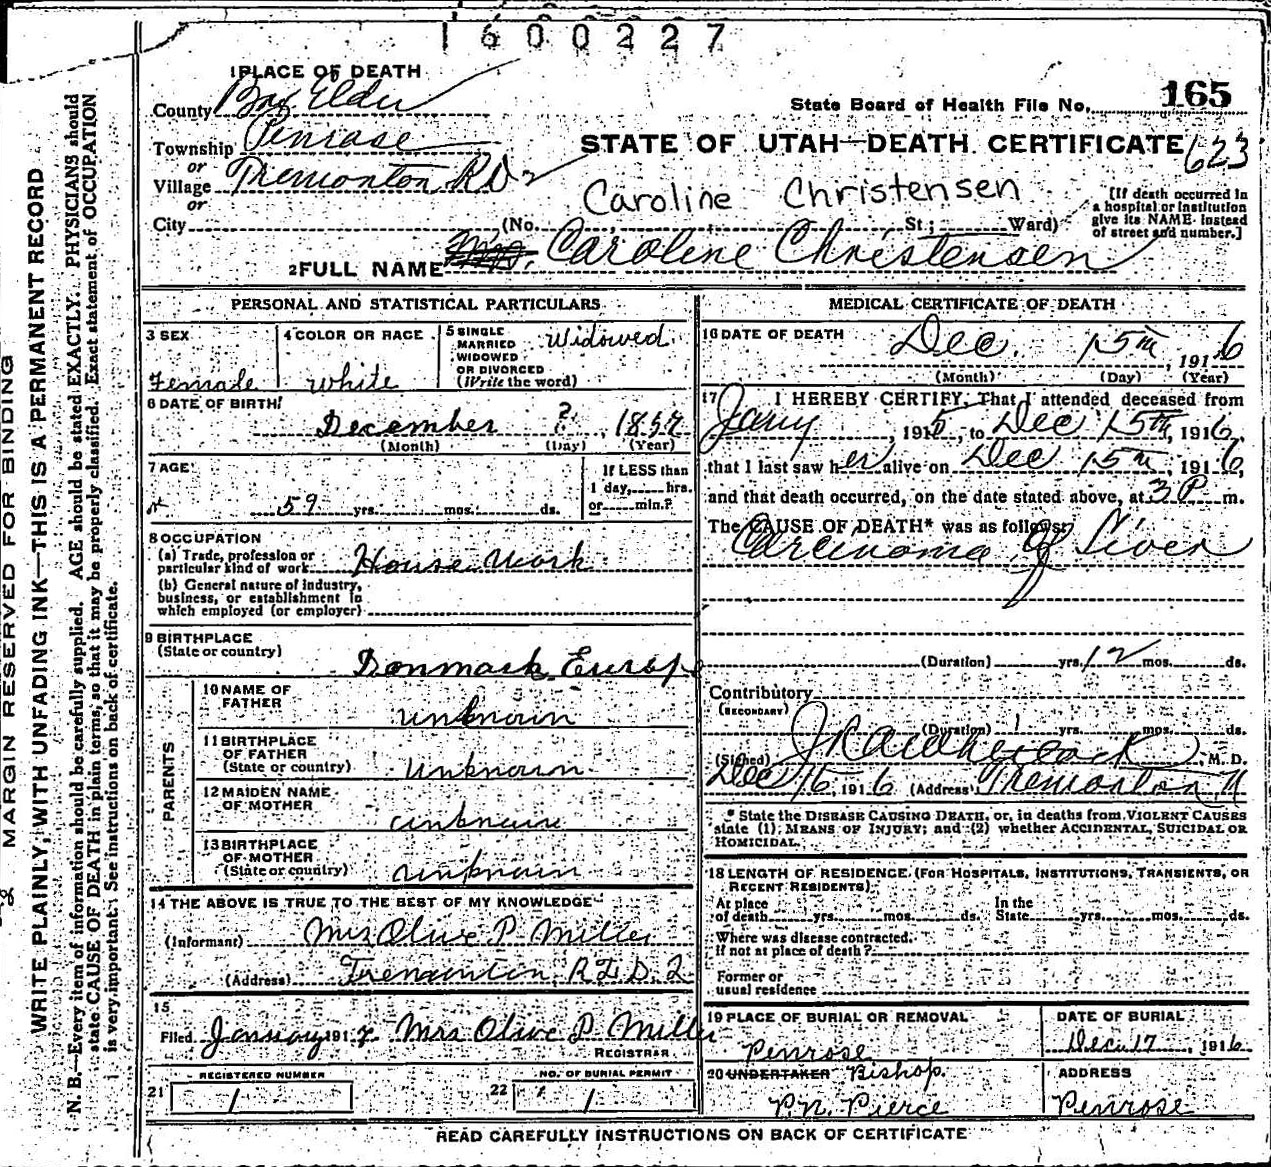 1600227
1 PLACE OF DEATH
County Box Elder
State Board of Health File No. 165
Township Penrose
STATE OF UTAH—DEATH CERTIFICATE 623
or
Village Tremonton RD 2
or
Caroline Christensen
[If death occurred in
a hospital or institution
give its NAME instead
of street and number.]
City (No. St; Ward)
2 FULL NAME Mrs. Caroline Christensen
PERSONAL AND STATISTICAL PARTICULARS
3 SEX
Female
4 COLOR OR RACE
white
5 SINGLE
MARRIED
WIDOWED
OR DIVORCED
(Write the word)
Widowed
6 DATE OF BIRTH
December ? 1857
(Month) (Day) (Year)
7 AGE
59 yrs. mos. ds.
If LESS than
1 day, hrs.
or min.?
8 OCCUPATION
(a) Trade, profession or
particular kind of work House Work
(b) General nature of industry,
business, or establishment in
which employed (or employer)
9 BIRTHPLACE
(State or country)
Denmark Europe
PARENTS
10 NAME OF
FATHER
unknown
11 BIRTHPLACE
OF FATHER
(State or country)
Unknown
12 MAIDEN NAME
OF MOTHER
unknown
13 BIRTHPLACE
OF MOTHER
(State or country)
unknown
14 THE ABOVE IS TRUE TO THE BEST OF MY KNOWLEDGE
(Informant) Mrs Olive P Miller
(Address) Tremonton R.F.D. 2
15
Filed January 1917 Mrs Olive P Miller
REGISTRAR
REGISTERED NUMBER
21 1
NO. OF BURIAL PERMIT
22 1
MEDICAL CERTIFICATE OF DEATH
16 DATE OF DEATH
Dec. 15th, 1916
(Month) (Day) (Year)
17 I HEREBY CERTIFY, That I attended deceased from
Jany, 1915, to Dec 15th, 1916,
that I last saw her alive on Dec 15th, 1916,
and that death occurred, on the date stated above, at 3 P m.
The CAUSE OF DEATH* was as follows:
Carcinoma of Liver
(Duration) yrs. 12 mos. ds.
Contributory
(SECONDARY)
(Duration) yrs. mos. ds.
(Signed) M. D.
Dec 16, 1916 (Address) Tremonton U
* State the DISEASE CAUSING DEATH, or, in deaths from VIOLENT CAUSES
state (1) MEANS OF INJURY; and (2) whether ACCIDENTAL, SUICIDAL OR
HOMICIDAL.
18 LENGTH OF RESIDENCE (FOR HOSPITALS, INSTITUTIONS, TRANSIENTS, OR
RECENT RESIDENTS)
At place
of death yrs. mos. ds.
In the
State yrs. mos. ds.
Where was disease contracted,
If not at place of death?
Former or
usual residence
19 PLACE OF BURIAL OR REMOVAL
Penrose
DATE OF BURIAL
Dec. 17, 1916
20 UNDERTAKER Bishop.
P.N. Pierce
ADDRESS
Penrose
READ CAREFULLY INSTRUCTIONS ON BACK OF CERTIFICATE
MARGIN RESERVED FOR BINDING
WRITE PLAINLY, WITH UNFADING INK—THIS IS A PERMANENT RECORD
N. B.—Every item of information should be carefully supplied. AGE should be stated EXACTLY. PHYSICIANS should
state CAUSE OF DEATH in plain terms, so that it may be properly classified. Exact statement of OCCUPATION
is very important. See instructions on back of certificate.